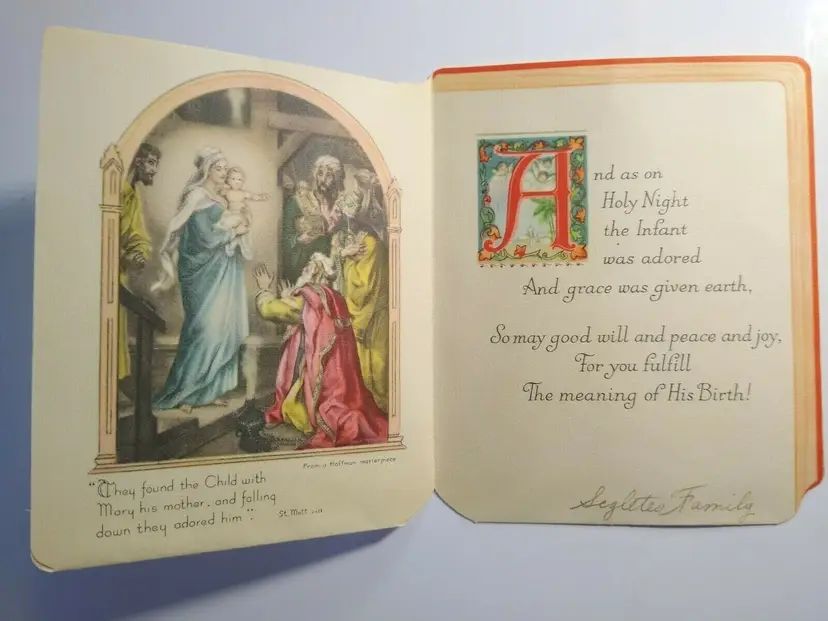 From a Hoffman masterpiece
"They found the Child with
Mary his mother, and falling
down they adored him".
St. Matt
And as on
Holy Night
the Infant
was adored
And grace was given earth,
So may good will and peace and joy,
For you fulfill
The meaning of His Birth!
Family